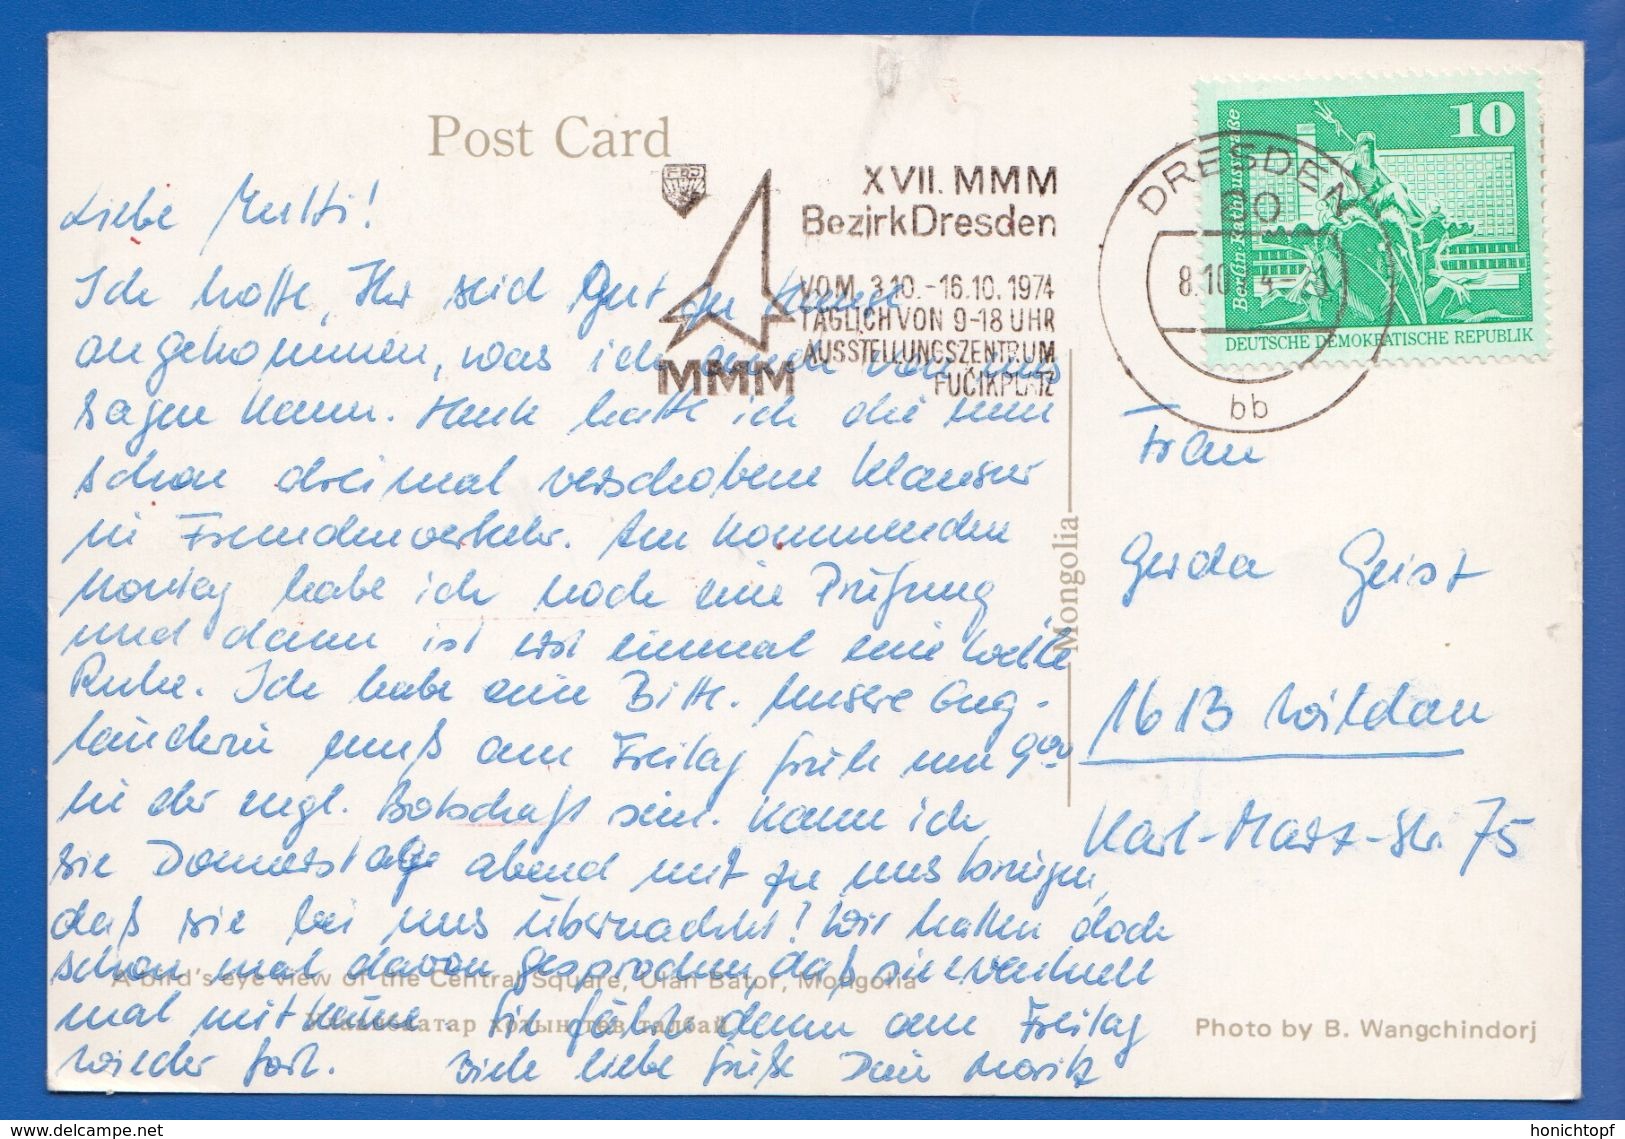 Post Card
FDJ
MMM
XVII. MMM
Bezirk Dresden
VOM 3.10.-16.10.1974
TÄGLICH VON 9-18 UHR
AUSSTELLUNGSZENTRUM
FUČIKPLATZ
DRESDEN
20
8.10.
bb
10
Berlin Rathausstraße
DEUTSCHE DEMOKRATISCHE REPUBLIK
Liebe Mutti!
Ich hoffe, Ihr seid gut zu Hause
angekommen, was ich auch von uns
sagen kann. Heute hatte ich die nun
schon dreimal verschobene Klausur
in Fremdenverkehr. Am kommenden
Montag habe ich noch eine Prüfung
und dann ist erst einmal eine Weile
Ruhe. Ich habe eine Bitte. Unsere Eng-
länderin muß am Freitag früh um 9⁰⁰
in der engl. Botschaft sein. Kann ich
sie Donnerstag abend mit zu uns bringen,
daß sie bei uns übernachtet! Wir hatten doch
schon mal davon gesprochen, daß sie
mal mit käme. Sie fährt dann am Freitag
wieder fort. Viele liebe Grüße Dein Moritz
Frau
Gerda Geist
1613 Wildau
Karl-Marx-Str. 75
Mongolia
A bird's eye view of the Central Square, Ulan Bator, Mongolia
Улаанбаатар хотын төв талбай
Photo by B. Wangchindorj
www.delcampe.net
honichtopf